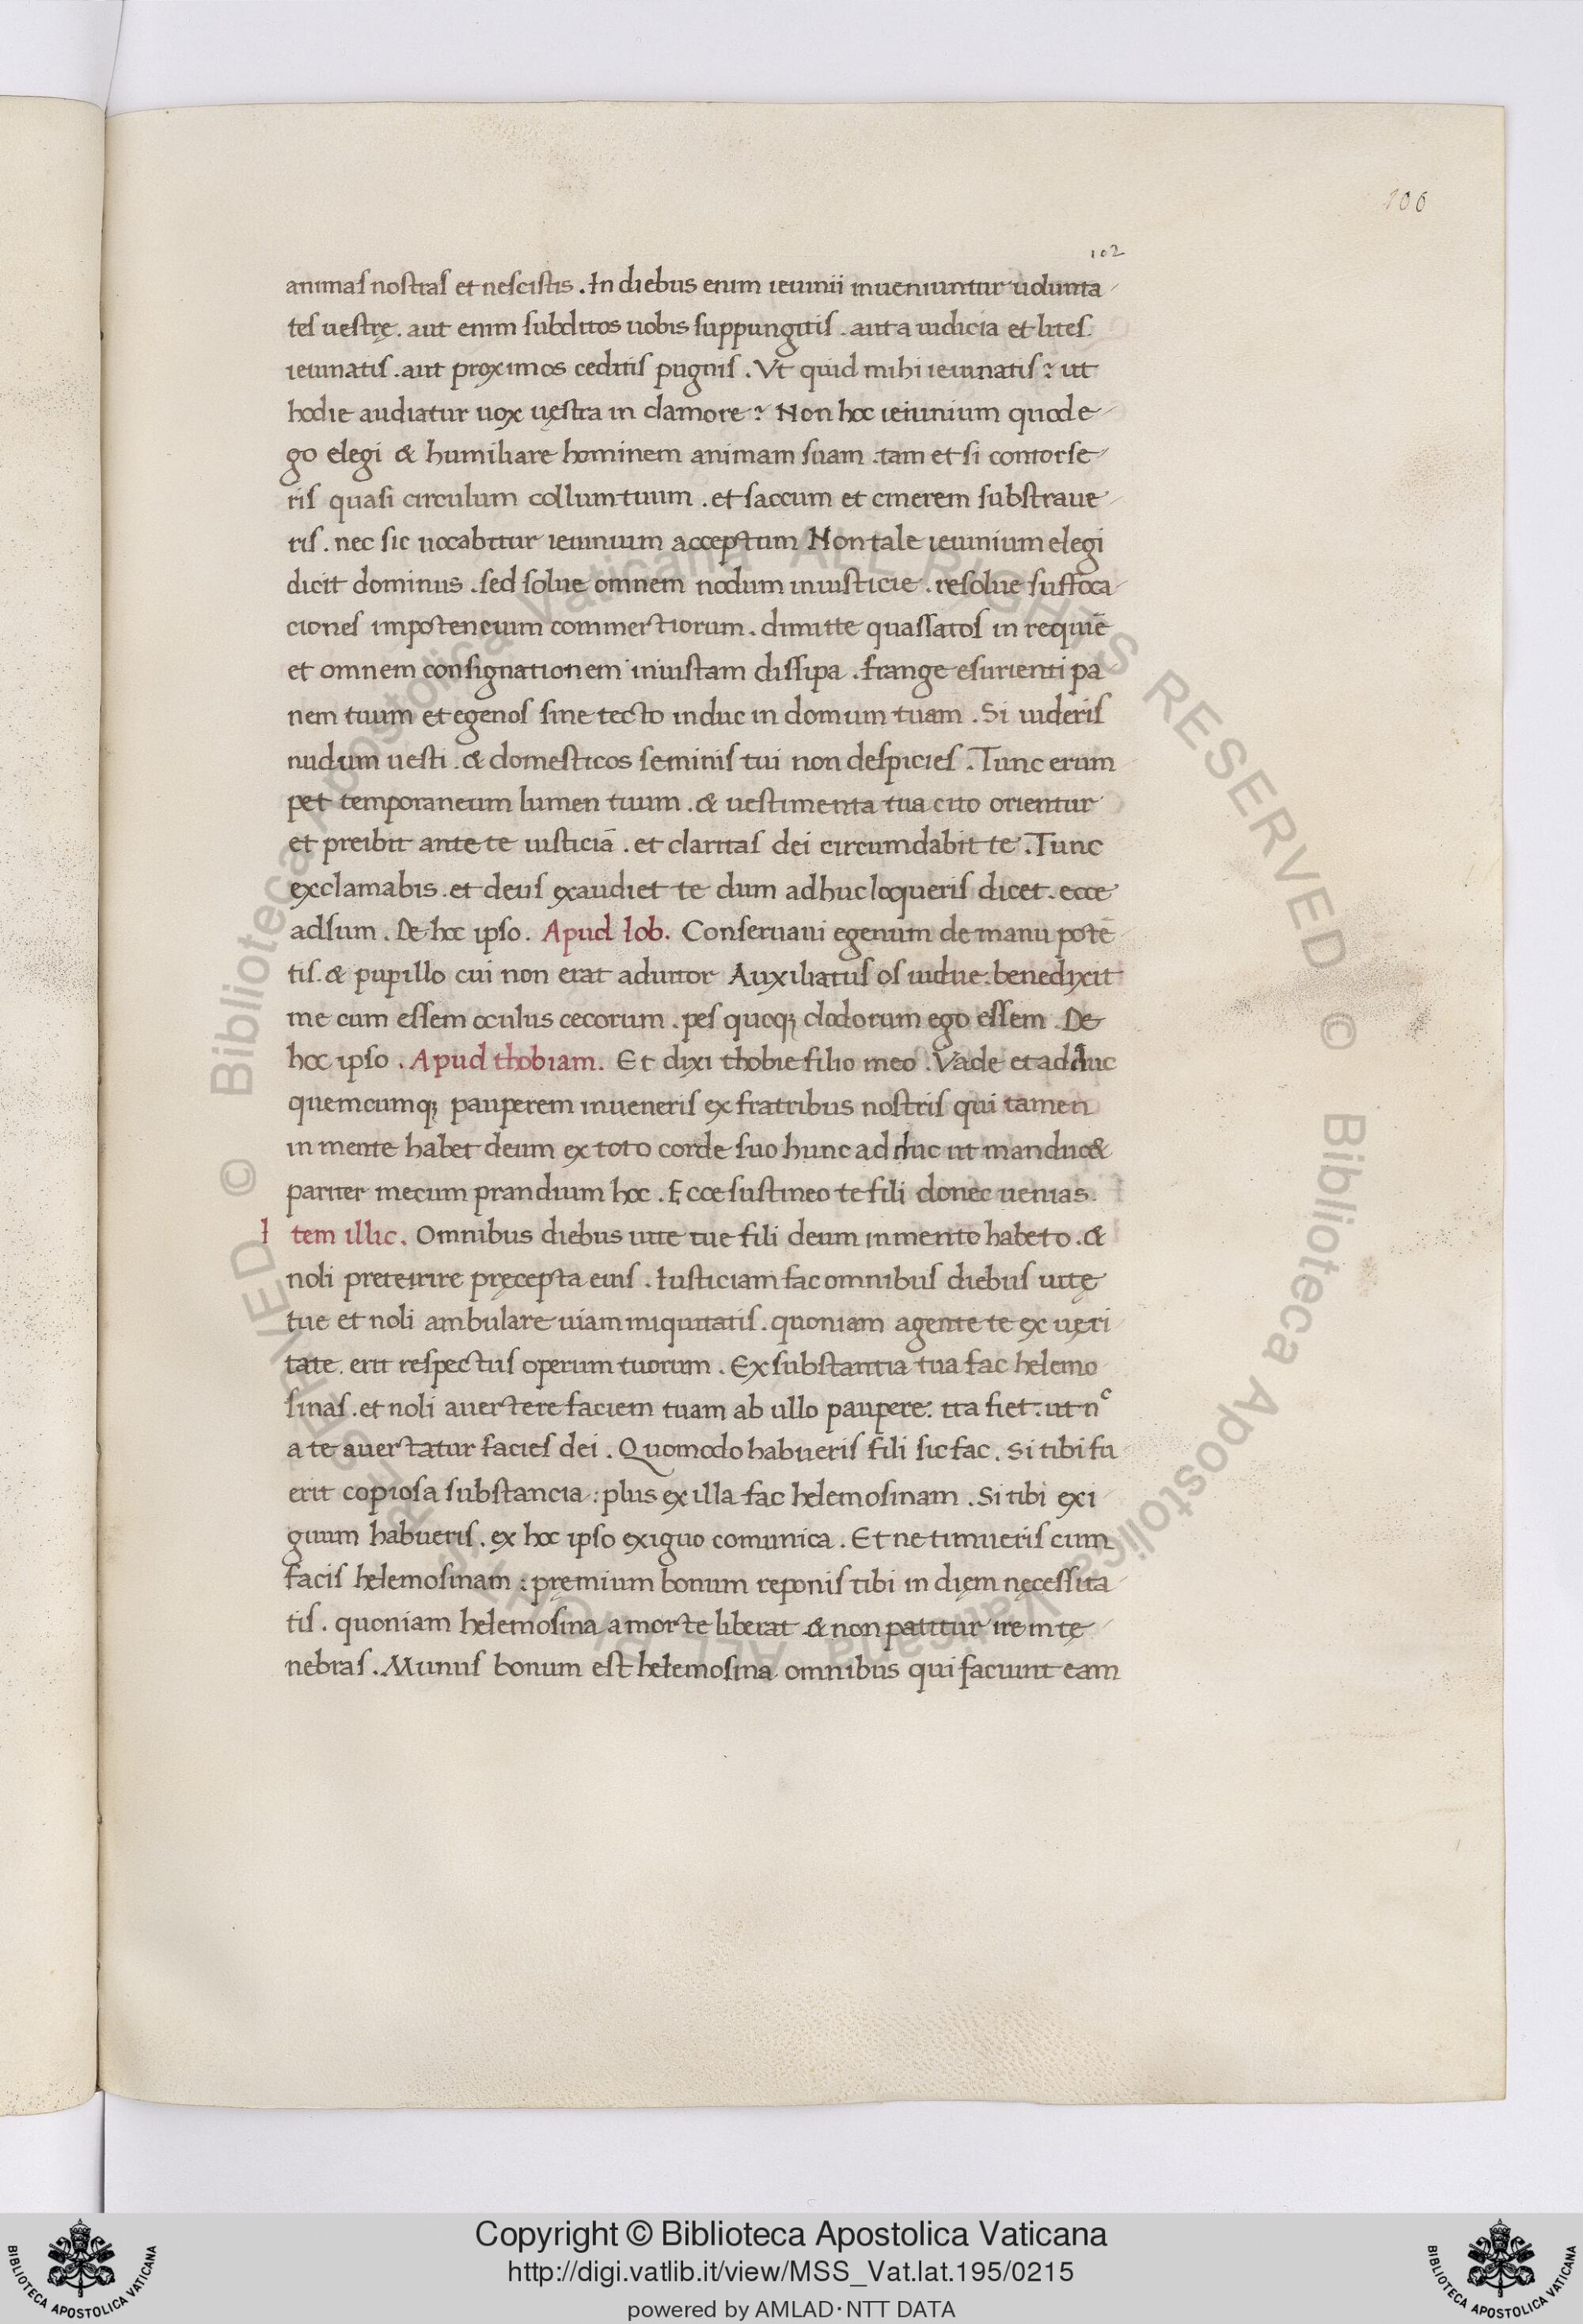 106
102
animas nostras et nescistis . In diebus enim ieiunii inueniuntur uolunta
tes uestrę . aut enim subditos uobis suppungitis . aut a iudicia et lites
ieiunatis . aut proximos ceditis pugnis . Vt quid mihi ieiunatis ? ut
hodie audiatur uox uęstra in clamore ? Non hoc ieiunium quod e
go elegi & humiliare hominem animam suam . tam et si contorse
ris quasi circulum collum tuum . et saccum et cinerem substraue
ris . nec sic uocabitur ieiunium acceptum Non tale ieiunium elegi
dicit dominus . sed solue omnem nodum iniusticie . resolue suffoca
ciones impotencium commertiorum . dimitte quassatos in requiē
et omnem consignationem iniustam dissipa . frange esurienti pa
nem tuum et egenos sine tecto induc in domum tuam . Si uideris
nudum uesti . & domesticos seminis tui non despicies . Tunc erum
pet temporaneum lumen tuum . & uestimenta tua cito orientur
et preibit ante te iusticiā . et claritas dei circumdabit te . Tunc
exclamabis . et deus exaudiet te dum adhuc loqueris dicet . ecce
adsum . De hoc ipso . Apud Iob . Conseruaui egenum de manu potē
tis . & pupillo cui non erat aduitor Auxiliatus os uidue . benedixit
me cum essem oculus cecorum . pes quoq; clodorum ego essem . De
hoc ipso . Apud thobiam . Et dixi thobie filio meo . Vade et adduc
quemcumq; pauperem inueneris ex fratribus nostris qui tamen
in mente habet deum ex toto corde suo hunc adduc ut manduc&
pariter mecum prandium hoc . Ecce sustineo te fili donec uenias .
Item illic . Omnibus diebus uite tue fili deum in mento habeto . &
noli preteirire pręcepta eius . Iusticiam fac omnibus diebus uitę
tue et noli ambulare uiam iniquitatis . quoniam agente te ex uęri
tate . erit respectus operum tuorum . Ex substantia tua fac helemo
sinas . et noli auertere faciem tuam ab ullo paupere . ita fiet . ut nᶜ
a te auertatur facies dei . Quomodo habueris fili sic fac . Si tibi fu
erit copiosa substancia : plus ex illa fac helemosinam . Si tibi exi
guum habueris . ex hoc ipso exiguo comunica . Et ne timueris cum
facis helemosinam : pręmium bonum reponis tibi in dięm nęcessita
tis . quoniam helemosina a morte liberat & non patitur ire in tę
nebras . Munus bonum est helemosina omnibus qui faciunt eam
Copyright © Biblioteca Apostolica Vaticana
http://digi.vatlib.it/view/MSS_Vat.lat.195/0215
powered by AMLAD·NTT DATA